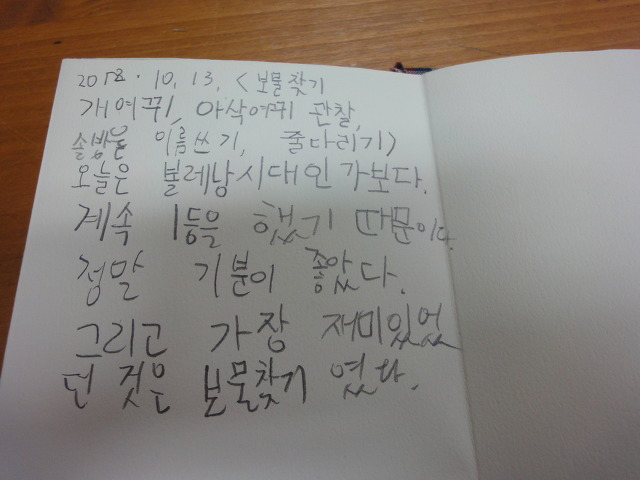 2018. 10. 13. <보물찾기
개여뀌, 아삭여뀌 관찰,
솔방울 이름쓰기, 줄다리기>
오늘은 볼레낭시대인가보다.
계속 1등을 했기 때문이다.
정말 기분이 좋았다.
그리고 가장 재미있었
던 것은 보물찾기 였다.